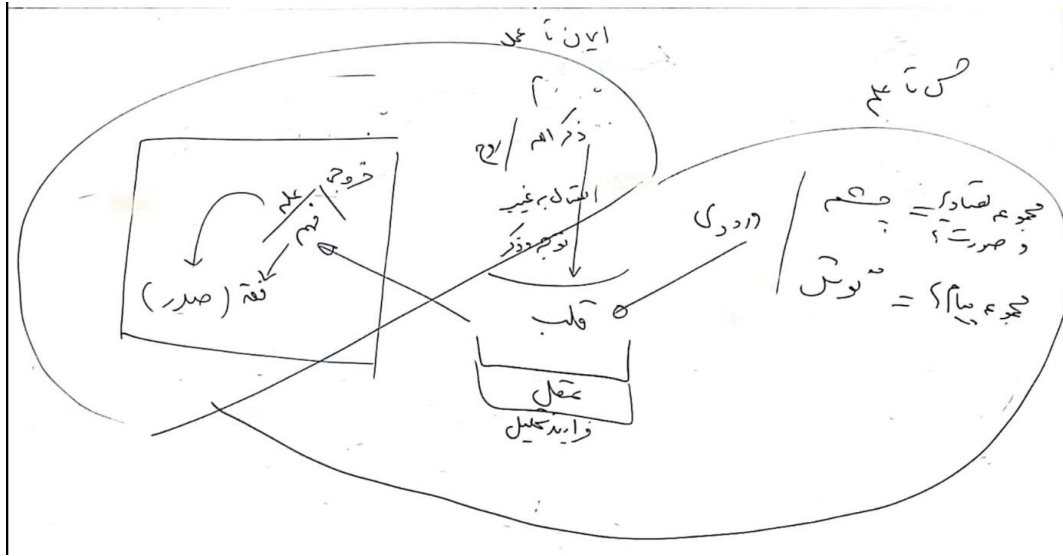 ایمان تا عمل
حس تا علم
ذکر الله / روح
اتصال به غیب
توجه و ذکر
قلب
عقل
فرایند تحلیل
ورودی
مجموعه تصاویر = چشم
و صورت؟
مجموعه پیام؟ = گوش
خروجی
علم
فهم
فقه (صدر)